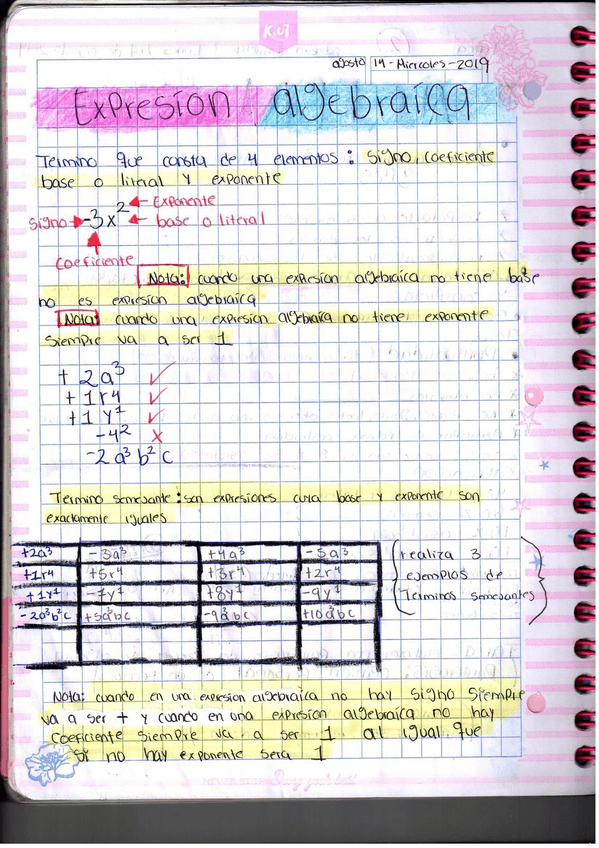 K.U7
agosto 14-Miercoles-2019
Expresion algebraica
Termino que consta de 4 elementos: Signo, coeficiente
base o literal y exponente
Signo -3x² Exponente
base o literal
Coeficiente
Nota: cuando una expresion algebraica no tiene base
no es expresion algebraica
Nota: cuando una expresion algebraica no tiene exponente
Siempre va a ser 1
+ 2a³ ✓
+ 1r⁴ ✓
+ 1y¹ ✓
-4² x
-2a³b²c
Termino semejante: son expresiones cuya base y exponente son
exactamente iguales
+2a³ -3a³ +4a³ -5a³
+1r⁴ +5r⁴ +3r⁴ +2r⁴
+1y¹ -7y¹ +8y¹ -9y¹
-2a³b²c
realiza 3
ejemplos de
Terminos semejantes
Nota: cuando en una expresion algebraica no hay signo siempre
va a ser + y cuando en una expresion algebraica no hay
coeficiente siempre va a ser 1 al igual que
si no hay exponente sera 1